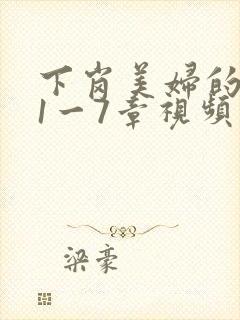 下岗美婦的
1一7章視頻
梁豪